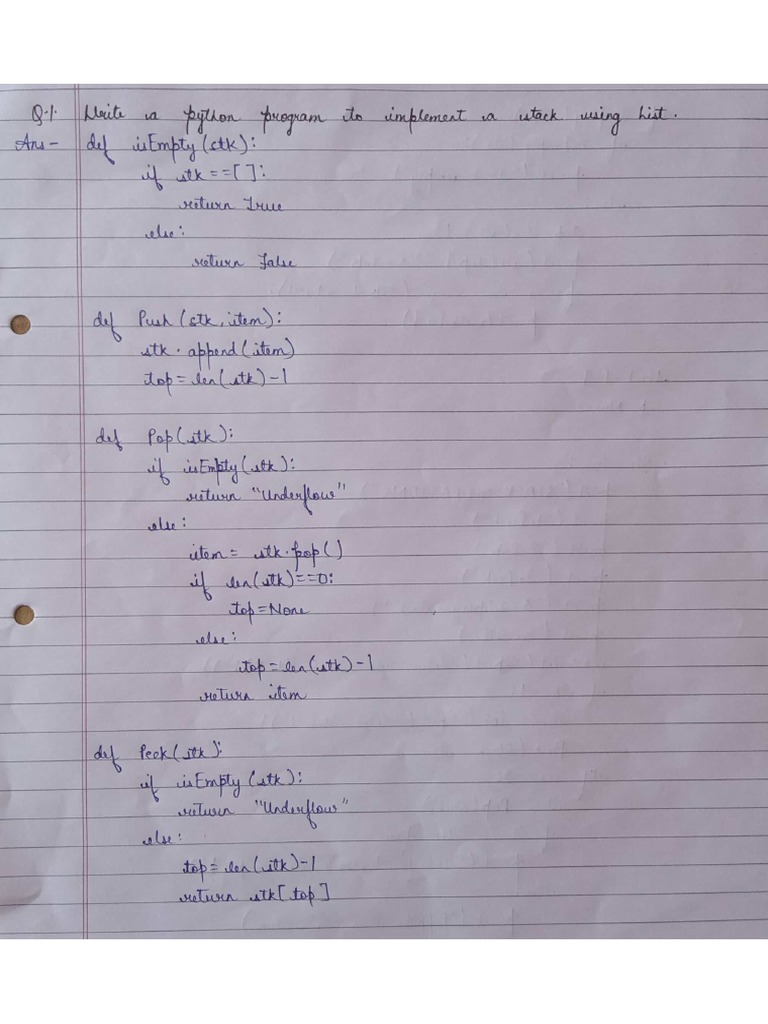 Q.1. Write a python program to implement a stack using List.
Ans- def isEmpty(stk):
if stk==[]:
return True
else:
return False
def Push(stk,item):
stk.append(item)
top=len(stk)-1
def Pop(stk):
if isEmpty(stk):
return "Underflow"
else:
item= stk.pop()
if len(stk)==0:
top=None
else:
top=len(stk)-1
return item
def Peek(stk):
if isEmpty(stk):
return "Underflow"
else:
top=len(stk)-1
return stk[top]